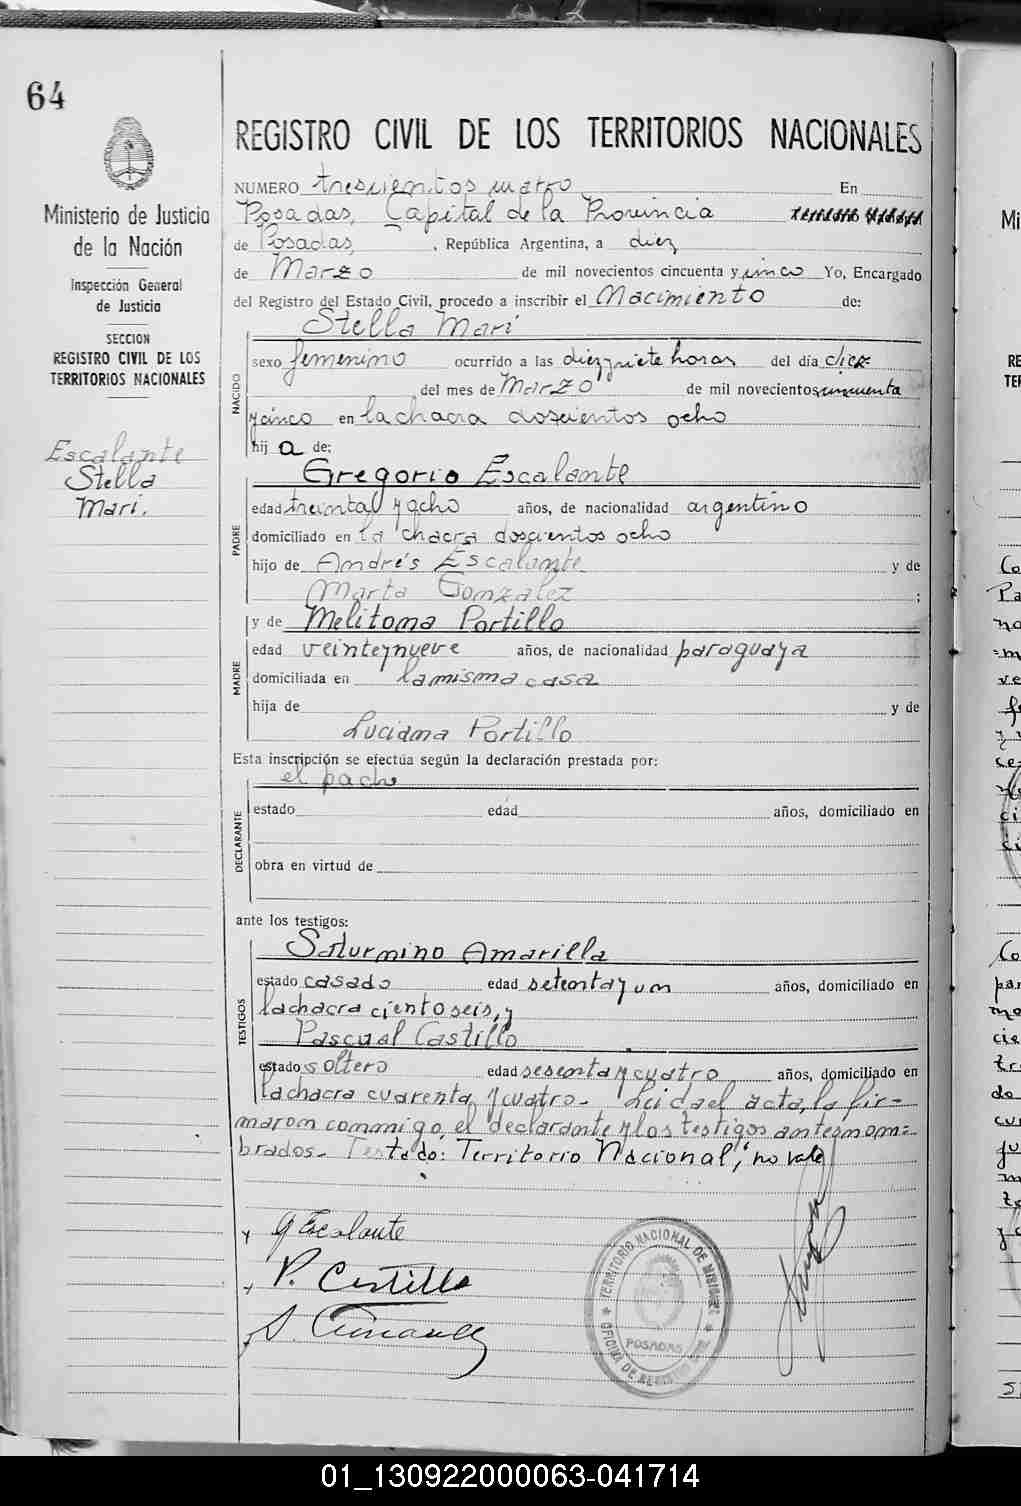 64
REGISTRO CIVIL DE LOS TERRITORIOS NACIONALES
Ministerio de Justicia
de la Nación
Inspección General
de Justicia
SECCION
REGISTRO CIVIL DE LOS
TERRITORIOS NACIONALES
Escalante
Stella
Mari.
NUMERO trescientos cuatro En
Posadas, Capital de la Provincia
de Posadas, República Argentina, a diez
de Marzo de mil novecientos cincuenta y cinco Yo, Encargado
del Registro del Estado Civil, procedo a inscribir el Nacimiento de:
NACIDO
Stella Mari
sexo femenino ocurrido a las diez y siete horas del día diez
del mes de Marzo de mil novecientos cincuenta
y cinco en la chacra doscientos ocho
hij a de:
PADRE
Gregorio Escalante
edad treinta y ocho años, de nacionalidad argentino
domiciliado en la chacra doscientos ocho
hijo de Andrés Escalante y de
Marta Gonzalez ;
MADRE
y de Melitona Portillo
edad veintey nueve años, de nacionalidad paraguaya
domiciliada en la misma casa
hija de y de
Luciana Portillo
Esta inscripción se efectúa según la declaración prestada por:
DECLARANTE
el padre
estado edad años, domiciliado en
obra en virtud de
ante los testigos:
TESTIGOS
Saturnino Amarilla
estado casado edad setenta y un años, domiciliado en
la chacra ciento seis, y
Pascual Castillo
estado soltero edad sesenta y cuatro años, domiciliado en
la chacra cuarenta y cuatro.- Leida el acta, la fir-
maron conmigo, el declarante y los testigos antesnom=
brados.- Testado: Territorio Nacional, no vale
G Escalante
P. Castillo
S. Amarilla
TERRITORIO NACIONAL DE MISIONES
POSADAS
OFICINA DE REGISTRO CIVIL
01_130922000063-041714